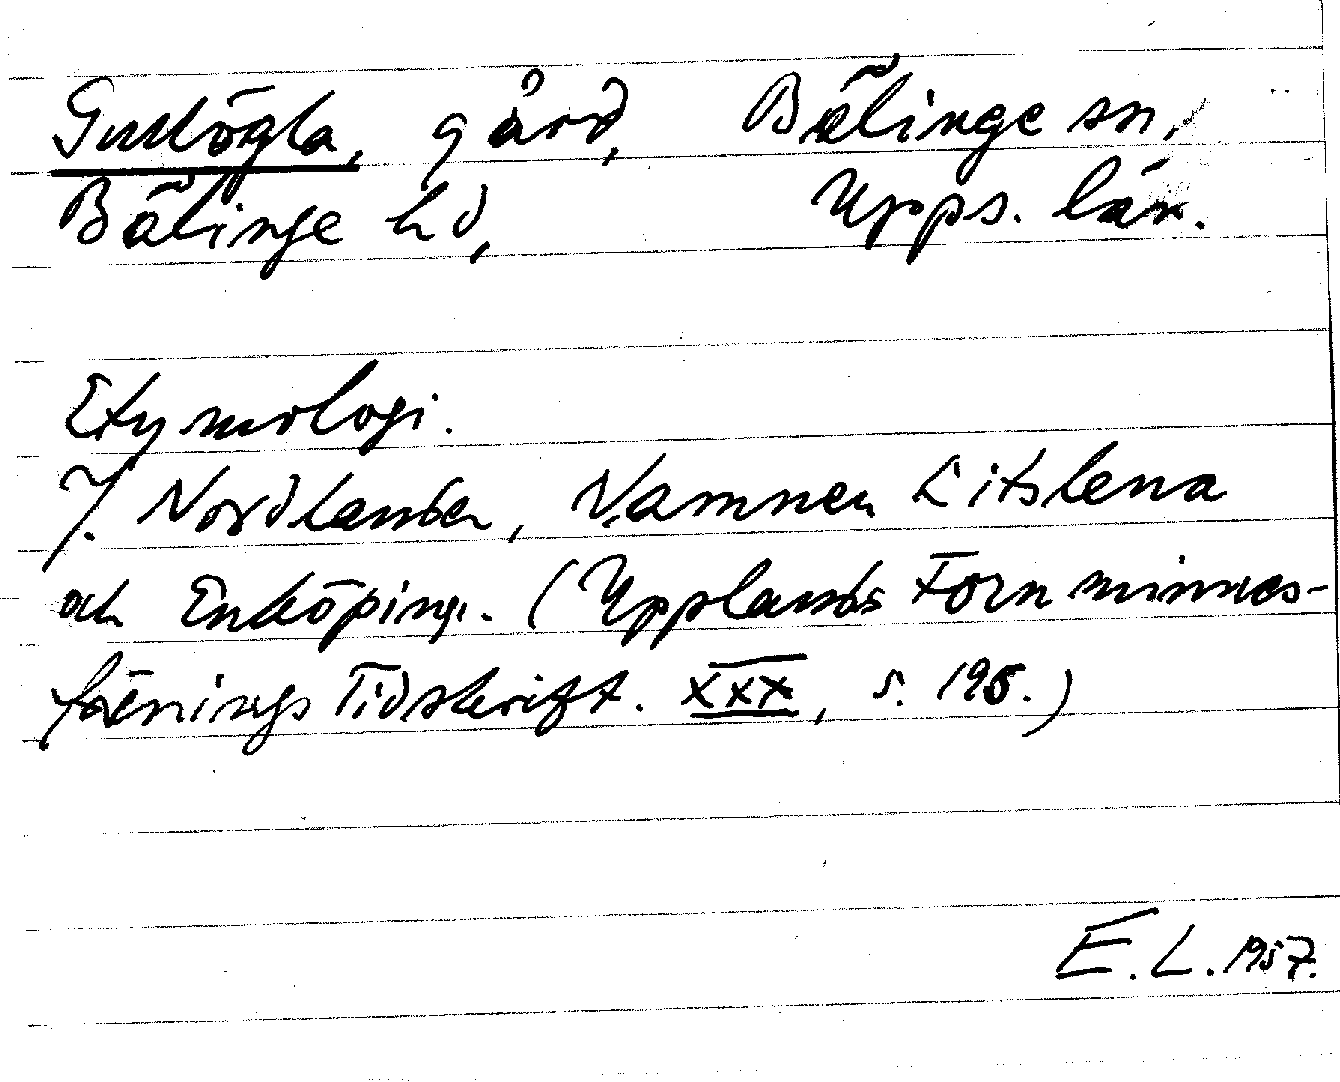 Gullögla, gård, Bälinge sn,
Bälinge hd, Upps. län.
Etymologi.
J. Nordlander, Namnen Litslena
och Enköping. (Upplands Fornminnes-
förenings Tidskrift. XXX, s. 195.)
E. L. 1957.